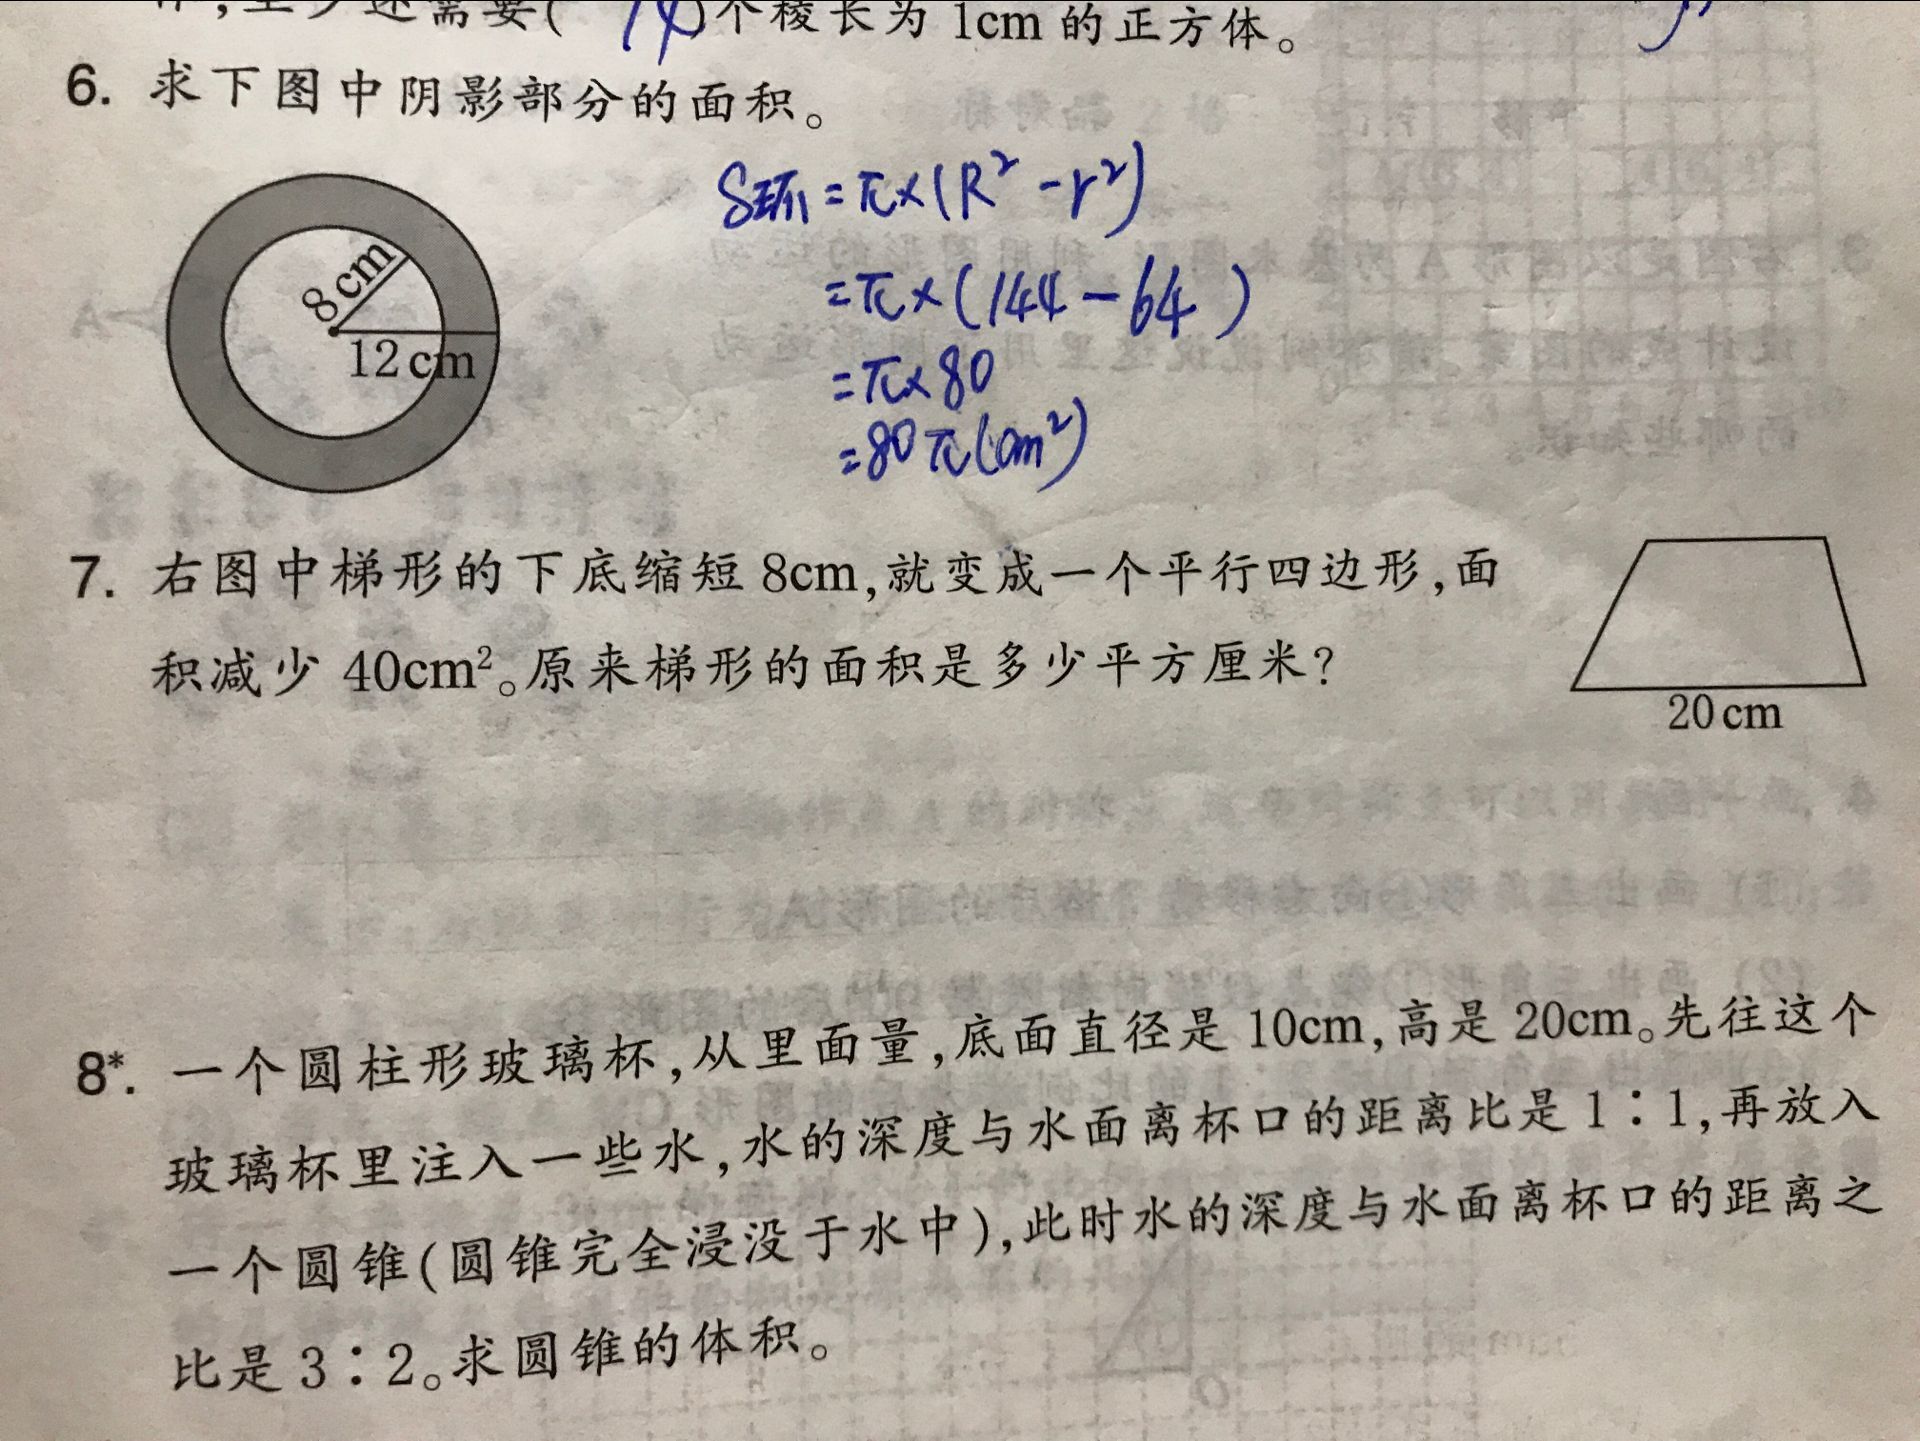 至少还需要(14)个棱长为1cm的正方体。
6. 求下图中阴影部分的面积。
8cm
12cm
S环=π×(R²-r²)
=π×(144-64)
=π×80
=80π(cm²)
7. 右图中梯形的下底缩短8cm,就变成一个平行四边形,面
积减少 40cm²。原来梯形的面积是多少平方厘米?
20cm
8*. 一个圆柱形玻璃杯,从里面量,底面直径是10cm,高是20cm。先往这个
玻璃杯里注入一些水,水的深度与水面离杯口的距离比是1∶1,再放入
一个圆锥(圆锥完全浸没于水中),此时水的深度与水面离杯口的距离之
比是3∶2。求圆锥的体积。